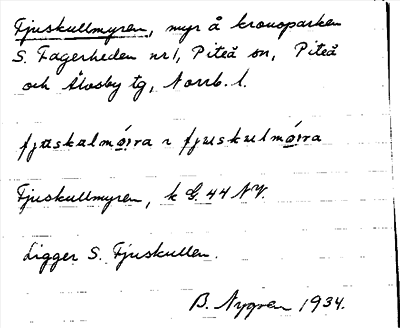 Fjuskullmyren, myr å kronoparken
S. Fagerheden nr 1, Piteå sn, Piteå
och Älvsby tg, Norrb. l.
fjuskalmøira ~ fjuskulmøira
Fjuskullmyren, k G. 44 NV.
Ligger S. Fjuskullen.
B. Nygren 1934.